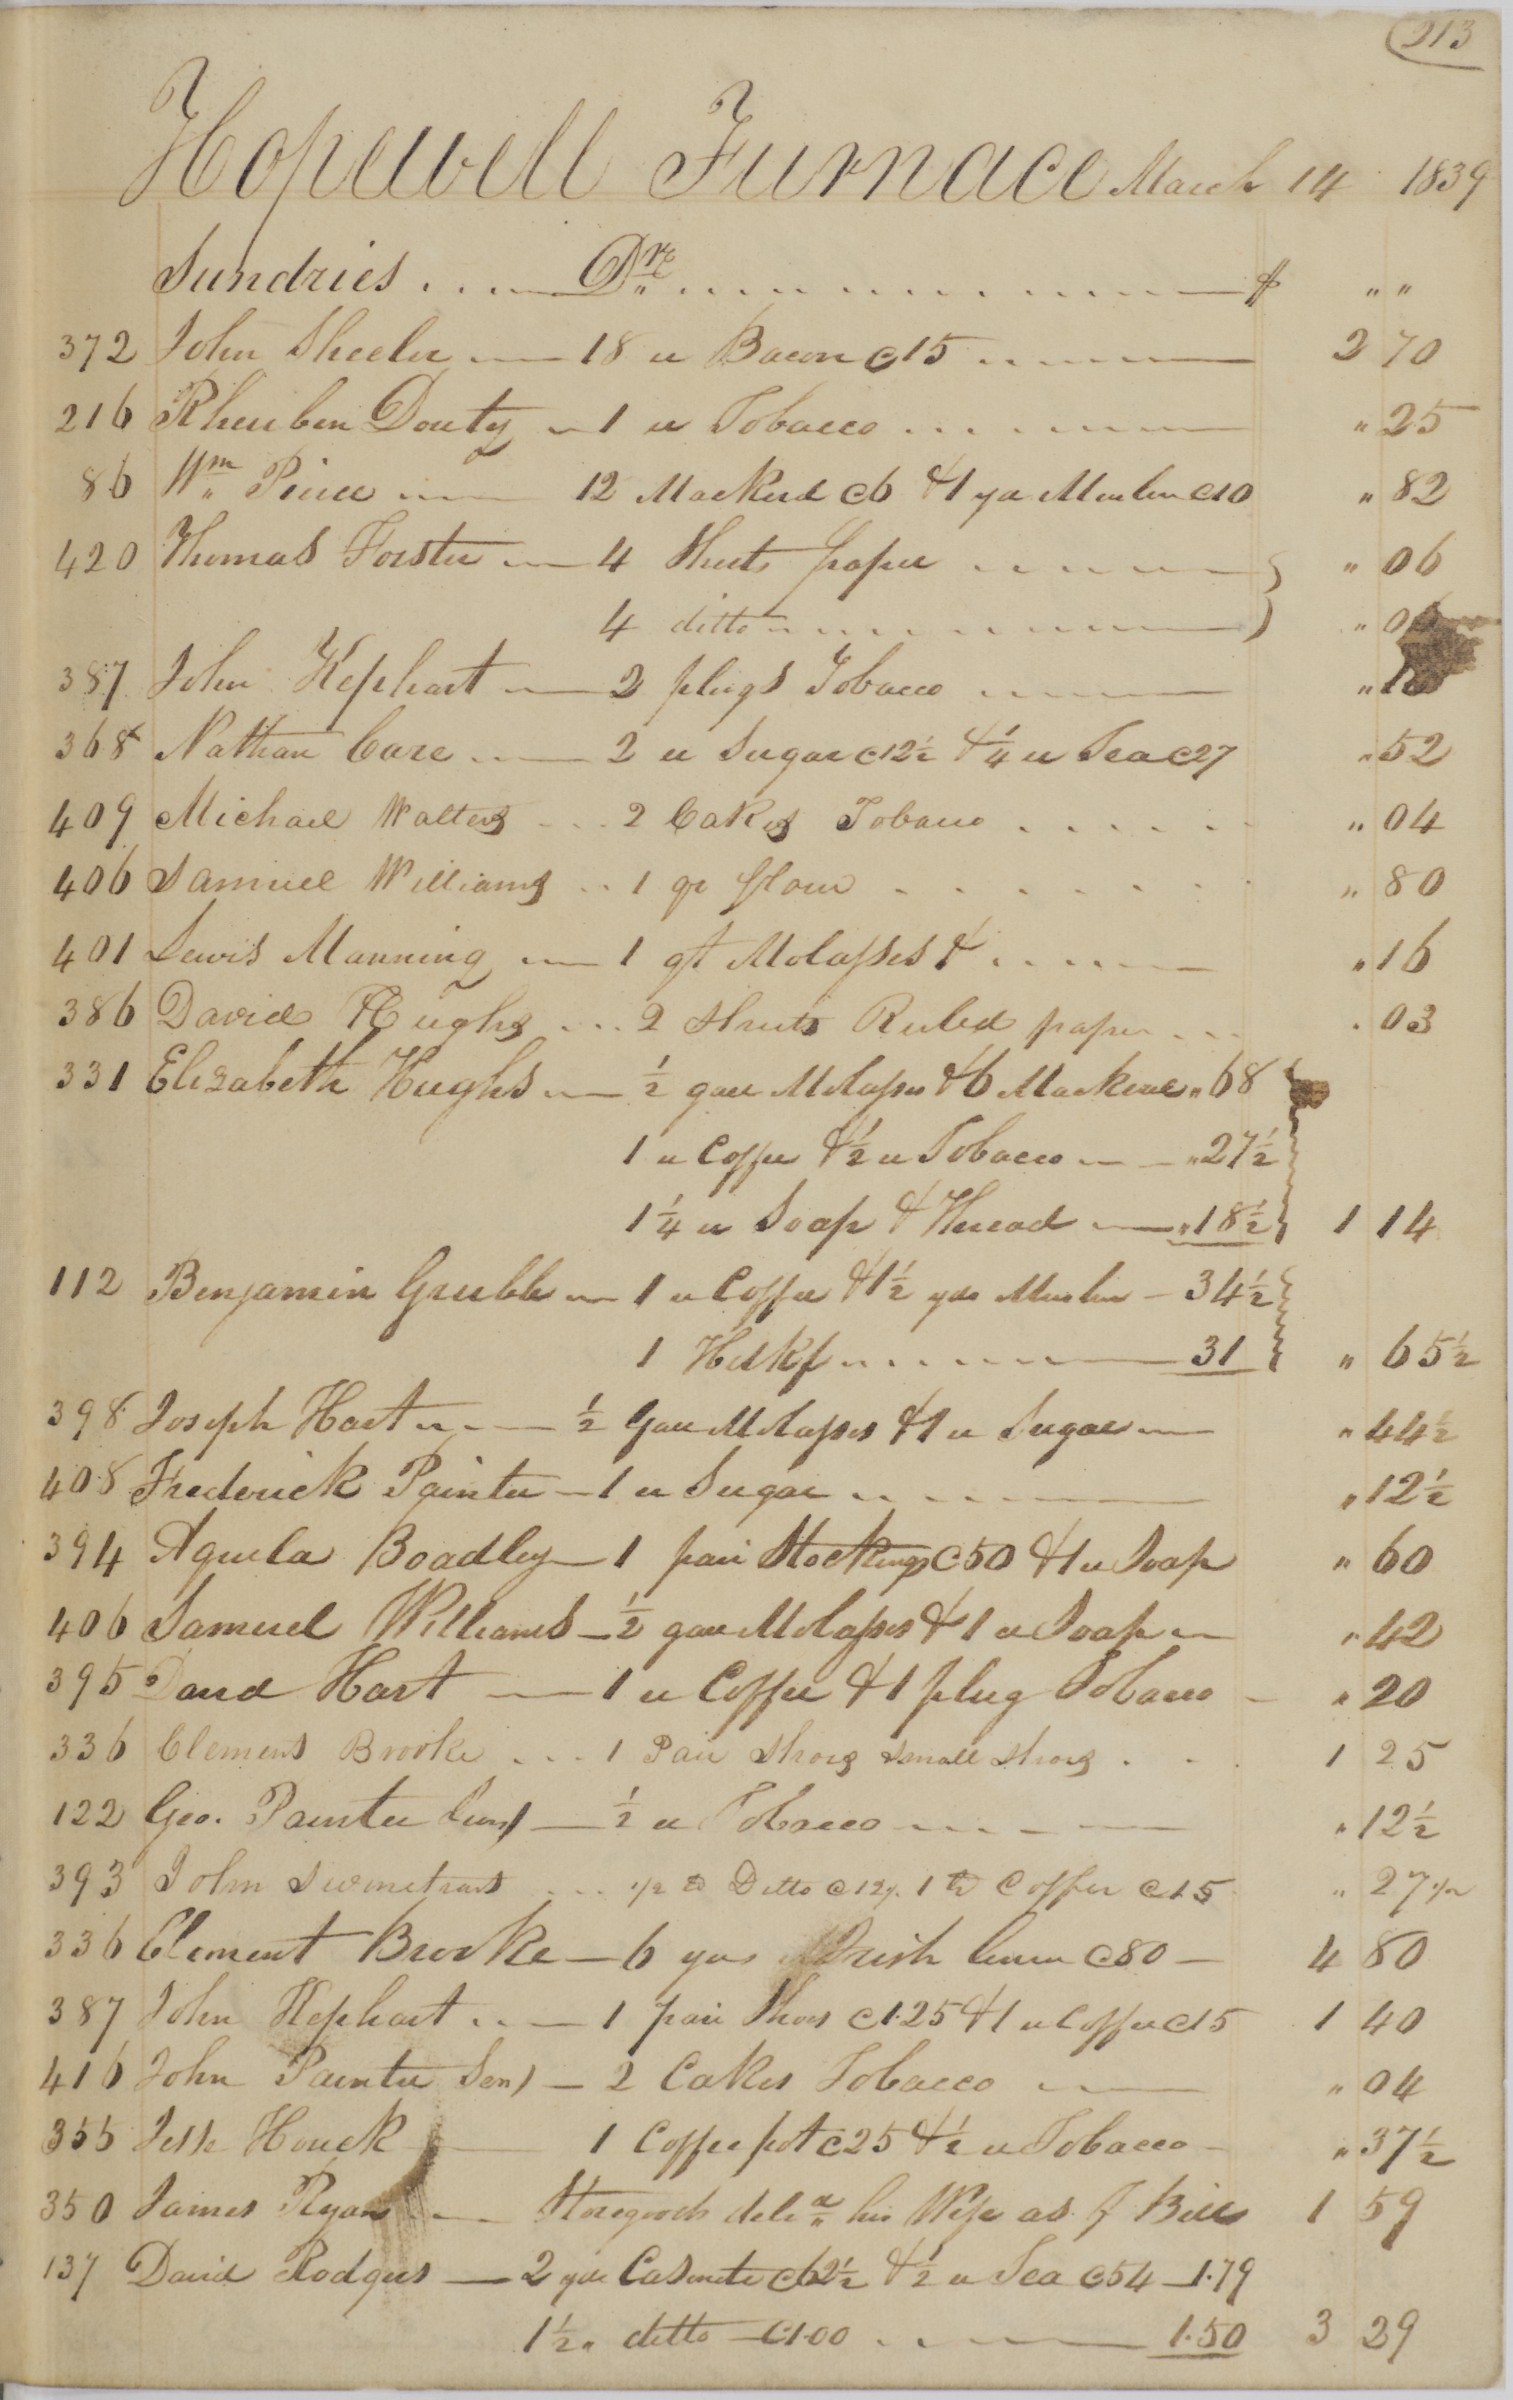 213
Hopewell Furnace March 14 1839
Sundries Drs $ " "
372 John Sheeler 18 u Bacon c15 2 70
216 Rheuben Douty 1 u Tobacco " 25
86 Wm Pierce 12 Mackerel c6 & 1 yd Muslin c10 " 82
420 Thomas Forster 4 Sheets paper " 06
4 ditto "
387 John Kephart 2 plugs Tobacco "
368 Nathan Care 2 u Sugar c12½ & ¼ u Tea c27 " 52
409 Michael Walters 2 Cakes Tobacco " 04
406 Samuel Williams 1 qr flour " 80
401 Lewis Manning 1 qt Molasses & " 16
386 David Hughs 2 Sheets Ruled paper " 03
331 Elizabeth Hughs ½ gall Molasses & 6 Mackerel " 68
1 u Coffee & ½ u Tobacco " 27½
1¼ u Soap & Thread " 18½ 1 14
112 Benjamin Grubb 1 u Coffee & 1½ yds Muslin 34½
1 Hdkf 31 " 65½
398 Joseph Hart ½ Gall Molasses & 1 u Sugar " 44½
408 Frederick Painter 1 u Sugar " 12½
394 Aquila Boadley 1 pair Stockings c50 & 1 u Soap " 60
406 Samuel Williams ½ gall Molasses & 1 u Soap " 42
395 David Hart 1 u Coffee & 1 plug Tobacco " 20
336 Clement Brooke 1 Pair Shoes small Shoes 1 25
122 Geo. Painter ½ u Tobacco " 12½
393 John Swinehart 1/2 lb Ditto c12½ 1 lb Coffee c15 " 27 1/2
336 Clement Brooke 6 yds Irish linen c80 4 80
387 John Kephart 1 pair Shoes c1.25 & 1 u Coffee c15 1 40
416 John Painter Sen) 2 Cakes Tobacco " 04
355 Jesse Houck 1 Coffee pot c25 & ½ u Tobacco " 37½
350 James Ryan Storegoods deld his Wife as p Bill 1 59
137 David Rodgers 2 yds Casinete c62½ & ½ u Tea c54 1.79
1½ " ditto c1.00 1.50 3 29